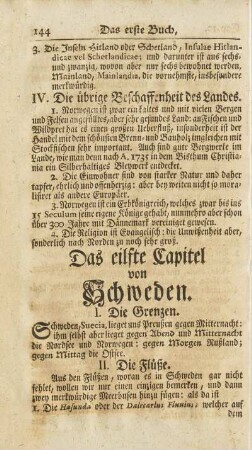 144 Das erste Buch,
3. Die Inseln Hitland oder Schetland, Insulæ Hitlan-
dicæ vel Schetlandicæ; und darunter ist aus sechs-
und zwanzig, wovon aber nur sechs bewohnet werden,
Mainland, Mainlandia, die vornehmste, insbesondere
merkwürdig.
IV. Die übrige Beschaffenheit des Landes.
1. Norwegen ist zwar ein kaltes und mit vielen Bergen
und Felsen angefülltes, aber sehr gesundes Land: an Fischen und
Wildpret hat es einen großen Ueberfluß, insonderheit ist der
Handel mit den schönsten Brenn- und Bauholz, imgleichen mit
Stockfischen sehr important. Auch sind gute Bergwerke im
Lande, wie man denn noch A. 1731 in dem Bisthum Christia-
nia ein Silberhältiges Bleywerk endeckt.
2. Die Einwohner sind von starker Natur und daher
tapfer, ehrlich und offenherzig: aber bey weiten nicht so mora-
lisiret als andere Europäer.
3. Norwegen ist ein Erbkönigreich, welches zwar bis ins
15 Seculum seine eigene Könige gehabt, nunmehro aber schon
über 300 Jahre mit Dännemark vereiniget gewesen.
4. Die Religion ist Evangelisch: die Unwißenheit aber,
sonderlich nach Norden zu noch sehr groß.
Das eilfte Capitel
von
Schweden.
I. Die Grenzen.
Schweden, Suecia, lieget uns Preußen gegen Mitternacht:
ihm selbst aber lieget gegen Abend und Mitternacht
die Nordsee und Norwegen: gegen Morgen Rußland;
gegen Mittag die Ostsee.
II. Die Flüße.
Aus den Flüßen, woran es in Schweden gar nicht
fehlet, wollen wir nur einen einzigen bemerken, und dann
zwey merkwürdige Meerbusen hinzu fügen: als da ist
1. Die Hafunda oder der Dalecarlus Finnius, welcher auf
dem